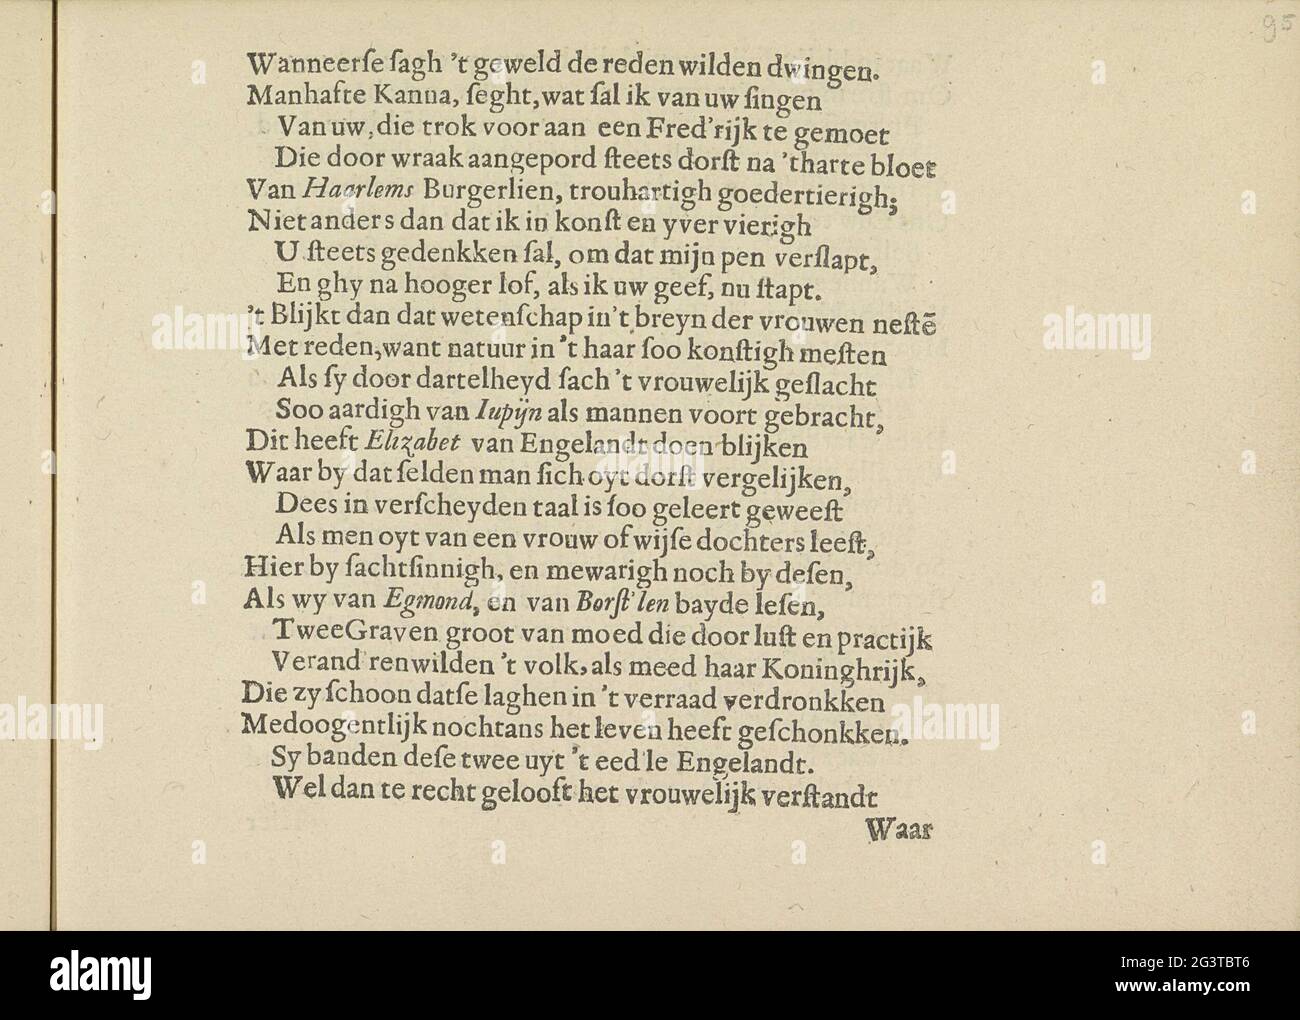 95
Wanneerſe ſagh 't geweld de reden wilden dwingen.
Manhafte Kanua, ſeght, wat ſal ik van uw ſingen
Van uw, die trok voor aan een Fred'rijk te gemoet
Die door wraak aangepord ſteets dorſt na 't harte bloet
Van Haarlems Burgerlien, trouhartigh goedertierigh;
Niet anders dan dat ik in konſt en yver vierigh
U ſteets gedenkken ſal, om dat mijn pen verſlapt,
En ghy na hooger lof, als ik uw geef, nu ſtapt.
't Blijkt dan dat wetenſchap in't breyn der vrouwen neſtē
Met reden, want natuur in 't haar ſoo konſtigh meſten
Als ſy door dartelheyd ſach 't vrouwelijk geſlacht
Soo aardigh van Iupijn als mannen voort gebracht,
Dit heeft Elizabet van Engelandt doen blijken
Waar by dat ſelden man ſich oyt dorſt vergelijken,
Dees in verſcheyden taal is ſoo geleert geweeſt
Als men oyt van een vrouw of wijſe dochters leeſt,
Hier by ſachtſinnigh, en mewarigh noch by deſen,
Als wy van Egmond, en van Borſt'len bayde leſen,
Twee Graven groot van moed die door luſt en practijk
Verand'ren wilden 't volk, als meed haar Koninghrijk,
Die zy ſchoon datſe laghen in 't verraad verdronkken
Medoogentlijk nochtans het leven heeft geſchonkken.
Sy banden deſe twee uyt 't eed'le Engelandt.
Wel dan te recht gelooft het vrouwelijk verſtandt
Waar
alamy
Image ID: 2G3TBT6
www.alamy.com